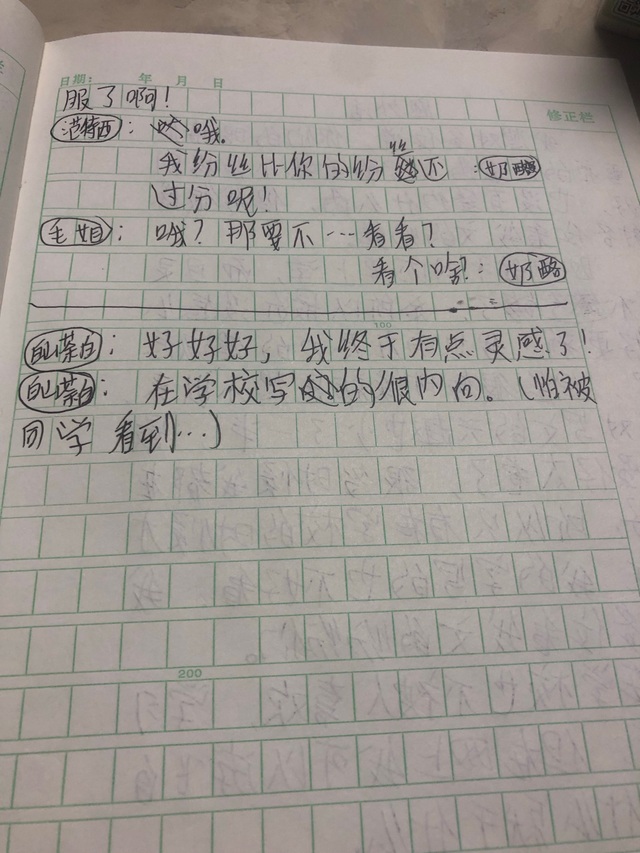 日期： 年 月 日
修正栏
服了啊！
范特西：哦。
我纷丝比你的纷丝还 ：奶酪
过分呢！
毛姐：哦？那要不…看看？
看个啥？：奶酪
100
白山茶：好好好，我终于有点灵感了！
白山茶：在学校写的很内向。（怕被
同学看到…）
200